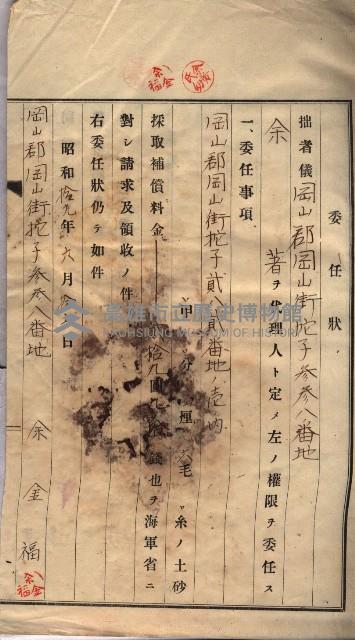 委任狀
拙者儀岡山郡岡山街挖子參參八番地
余 著ヲ代理人ト定メ左ノ權限ヲ委任ス
一、委任事項
岡山郡岡山街挖子貳八貳番地ノ壹內
甲 分 厘 六毛 糸ノ土砂
採取補償料金 拾九圓九拾 錢也ヲ海軍省ニ
對シ請求及領收ノ件
右委任狀仍テ如件
昭和拾九年六月 日
岡山郡岡山街挖子參參八番地
余金福
余金福
余金福
高雄市立歷史博物館
KAOHSIUNG MUSEUM OF HISTORY